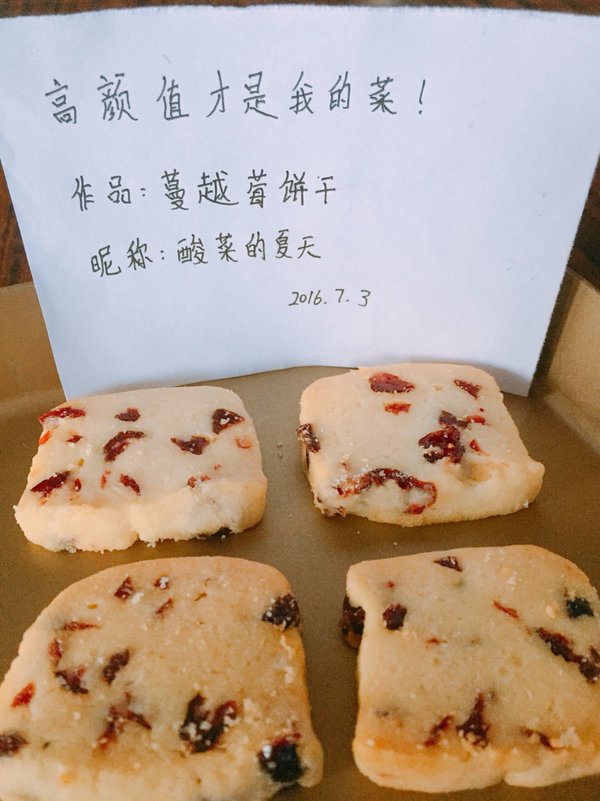 高颜值才是我的菜!
作品:蔓越莓饼干
昵称:酸菜的夏天
2016.7.3